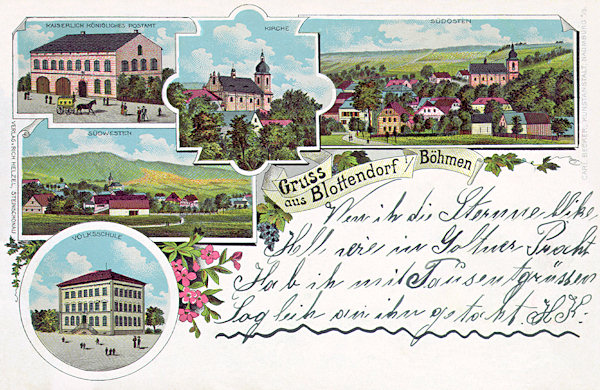 KAISERLICH KÖNIGLICHES POSTAMT
KIRCHE
SÜDOSTEN
SÜDWESTEN
VOLKSSCHULE
Gruss
aus Blottendorf
Böhmen
Wen ich die Sternne blike
Hell wie in Goltner Pracht
Hab ich mit Tausent grüssen
Sogleich an ihn getacht. H.K.
VERLAG V. RICH. HELZEL, STEINSCHÖNAU